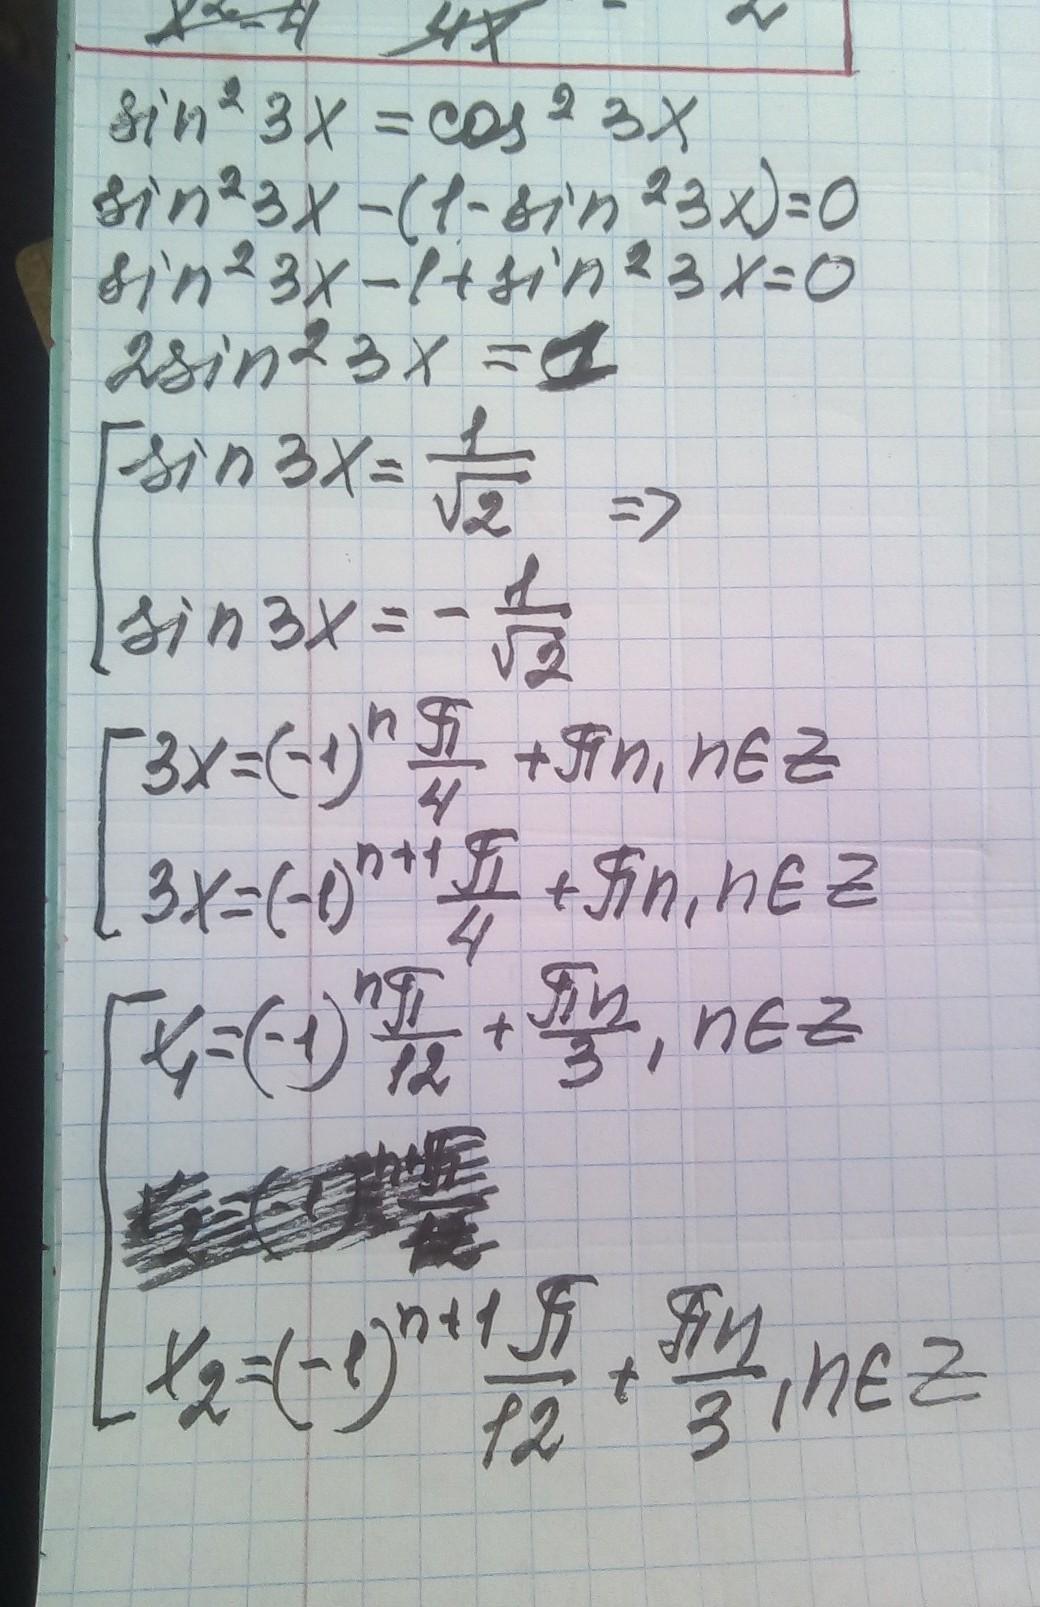 x²-4 4x - 2
sin² 3x = cos² 3x
sin² 3x - (1 - sin² 3x) = 0
sin² 3x - 1 + sin² 3x = 0
2sin² 3x = 1
sin 3x = 1/√2 =>
sin 3x = - 1/√2
3x = (-1)ⁿ π/4 + πn, n∈Z
3x = (-1)ⁿ⁺¹ π/4 + πn, n∈Z
x₁ = (-1)ⁿ π/12 + πn/3, n∈Z
x₂ = (-1)ⁿ⁺¹ π/12 + πn/3, n∈Z